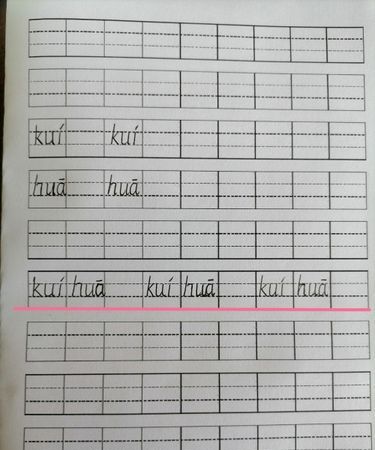 kuí kuí
huā huā
kuí huā kuí huā kuí huā